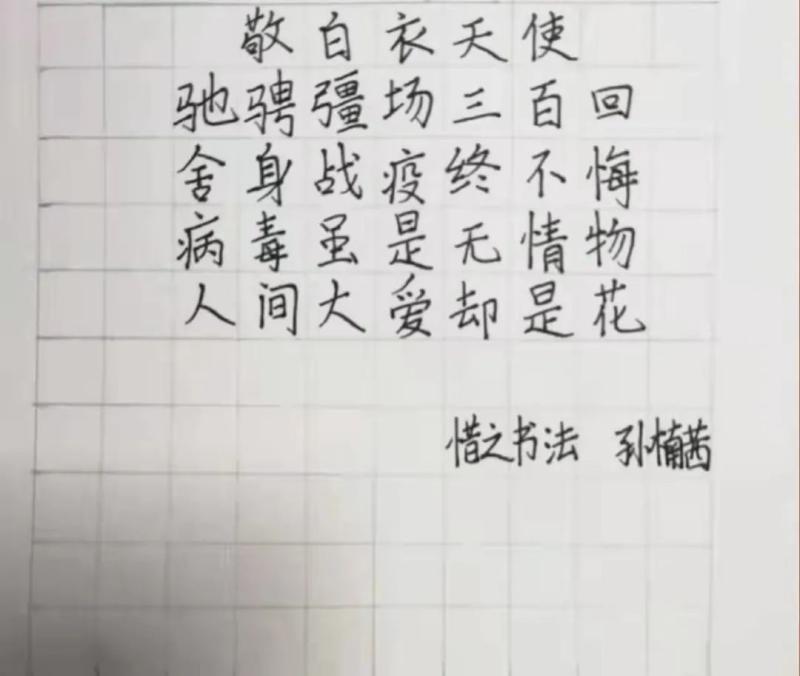 敬白衣天使
驰骋疆场三百回
舍身战疫终不悔
病毒虽是无情物
人间大爱却是花
惜之书法 孙楠茜